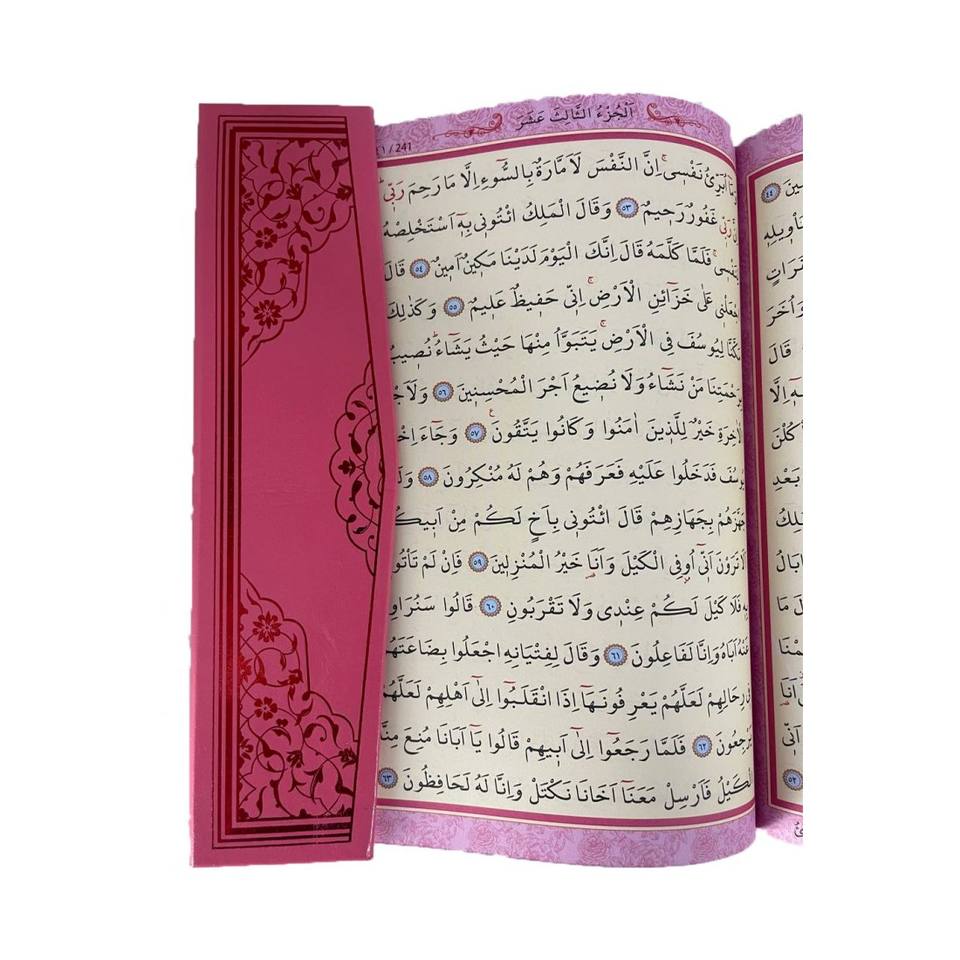 اَلْجُزْءُ الثَّالِثَ عَشَرَ
241 /
اُبَرِّئُ نَفْسٖيۚ اِنَّ النَّفْسَ لَاَمَّارَةٌ بِالسُّٓوءِ اِلَّا مَا رَحِمَ رَبّٖيۜ
رَبّٖي غَفُورٌ رَحٖيمٌ ٥٣ وَقَالَ الْمَلِكُ ائْتُونٖي بِهٖٓ اَسْتَخْلِصْهُ
لِنَفْسٖيۚ فَلَمَّا كَلَّمَهُ قَالَ اِنَّكَ الْيَوْمَ لَدَيْنَا مَكٖينٌ اَمٖينٌ ٥٤ قَالَ
اجْعَلْنٖي عَلٰى خَزَٓائِنِ الْاَرْضِۚ اِنّٖي حَفٖيظٌ عَلٖيمٌ ٥٥ وَكَذٰلِكَ
مَكَّنَّا لِيُوسُفَ فِي الْاَرْضِۚ يَتَبَوَّاُ مِنْهَا حَيْثُ يَشَٓاءُۜ نُصٖيبُ
بِرَحْمَتِنَا مَنْ نَشَٓاءُ وَلَا نُضٖيعُ اَجْرَ الْمُحْسِنٖينَ ٥٦ وَلَاَجْ
الْاٰخِرَةِ خَيْرٌ لِلَّذٖينَ اٰمَنُوا وَكَانُوا يَتَّقُونَۚ ٥٧ وَجَٓاءَ اِخْ
يُوسُفَ فَدَخَلُوا عَلَيْهِ فَعَرَفَهُمْ وَهُمْ لَهُ مُنْكِرُونَ ٥٨ وَلَ
جَهَّزَهُمْ بِجَهَازِهِمْ قَالَ ائْتُونٖي بِاَخٍ لَكُمْ مِنْ اَبٖيكُ
اَلَا تَرَوْنَ اَنّٖٓي اُو۫فِي الْكَيْلَ وَاَنَا۬ خَيْرُ الْمُنْزِلٖينَ ٥٩ فَاِنْ لَمْ تَأْتُو
بِهٖ فَلَا كَيْلَ لَكُمْ عِنْدٖي وَلَا تَقْرَبُونِ ٦٠ قَالُوا سَنُرَاوِ
عَنْهُ اَبَاهُ وَاِنَّا لَفَاعِلُونَ ٦١ وَقَالَ لِفِتْيَانِهِ اجْعَلُوا بِضَاعَتَهُمْ
فٖي رِحَالِهِمْ لَعَلَّهُمْ يَعْرِفُونَهَٓا اِذَا انْقَلَبُٓوا اِلٰٓى اَهْلِهِمْ لَعَلَّهُمْ
يَرْجِعُونَ ٦٢ فَلَمَّا رَجَعُٓوا اِلٰٓى اَبٖيهِمْ قَالُوا يَٓا اَبَانَا مُنِعَ مِنَّا
الْكَيْلُ فَاَرْسِلْ مَعَنَٓا اَخَانَا نَكْتَلْ وَاِنَّا لَهُ لَحَافِظُونَ ٦٣
٤٤
وَاُخَرَ
قَالَ
اِلَّا
بَعْدِ
مَا
اَنَا۬
اَنّٖي
٥٢